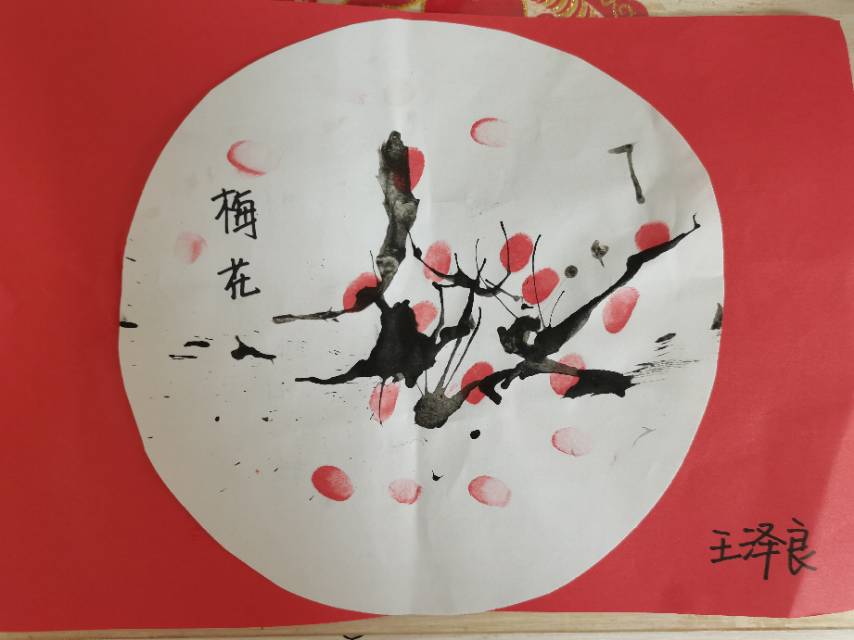 梅花
王泽良